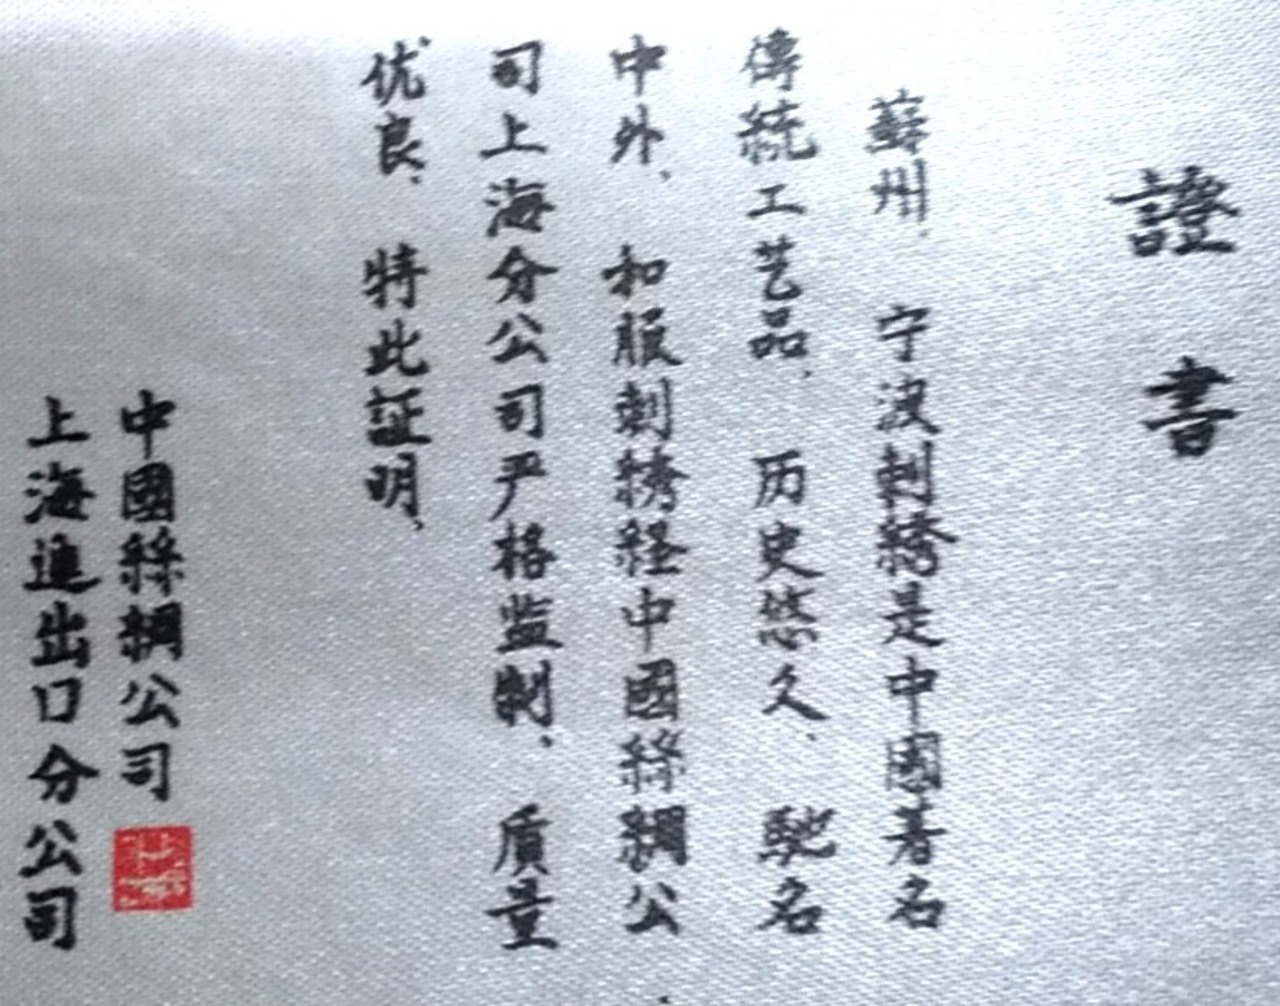 證書
蘇州、宁波刺绣是中國著名
傳統工艺品、历史悠久、馳名
中外、和服刺绣経中國絲綢公
司上海分公司严格监制、质量
优良、特此証明、
中國絲綢公司
上海進出口分公司